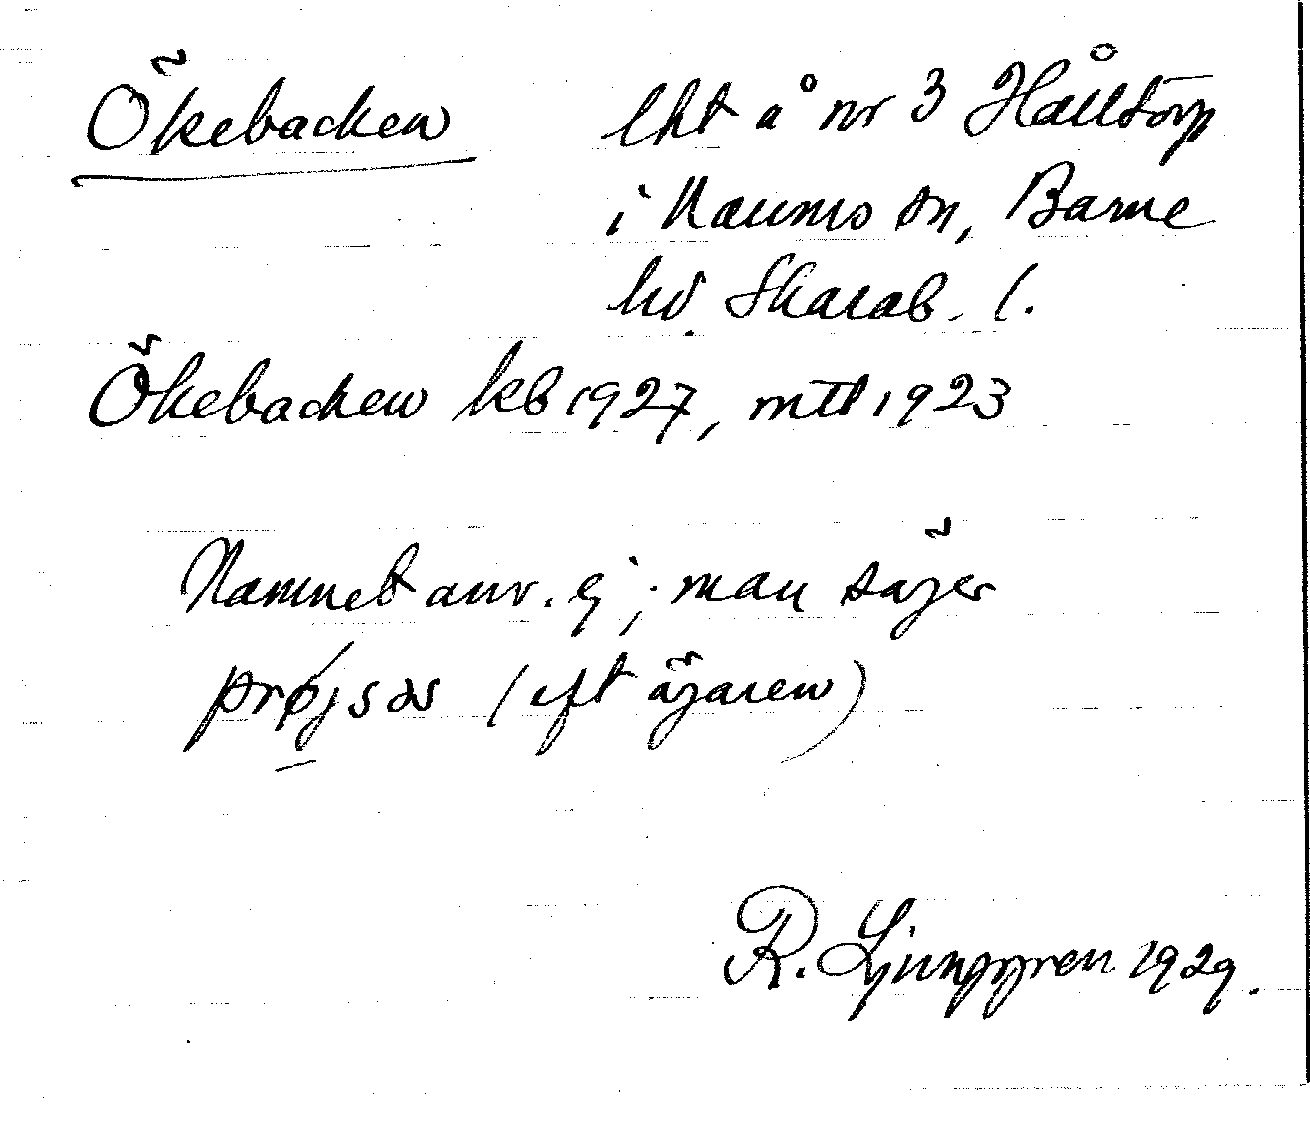 Ökebacken lht å nr 3 Hålltorp
i Naums sn, Barne
hd. Skarab. l.
Ökebacken kb 1927, mtl 1923
Namnet anv. ej; man säjer
prøjsas (eft äjaren)
R. Ljunggren 1929.